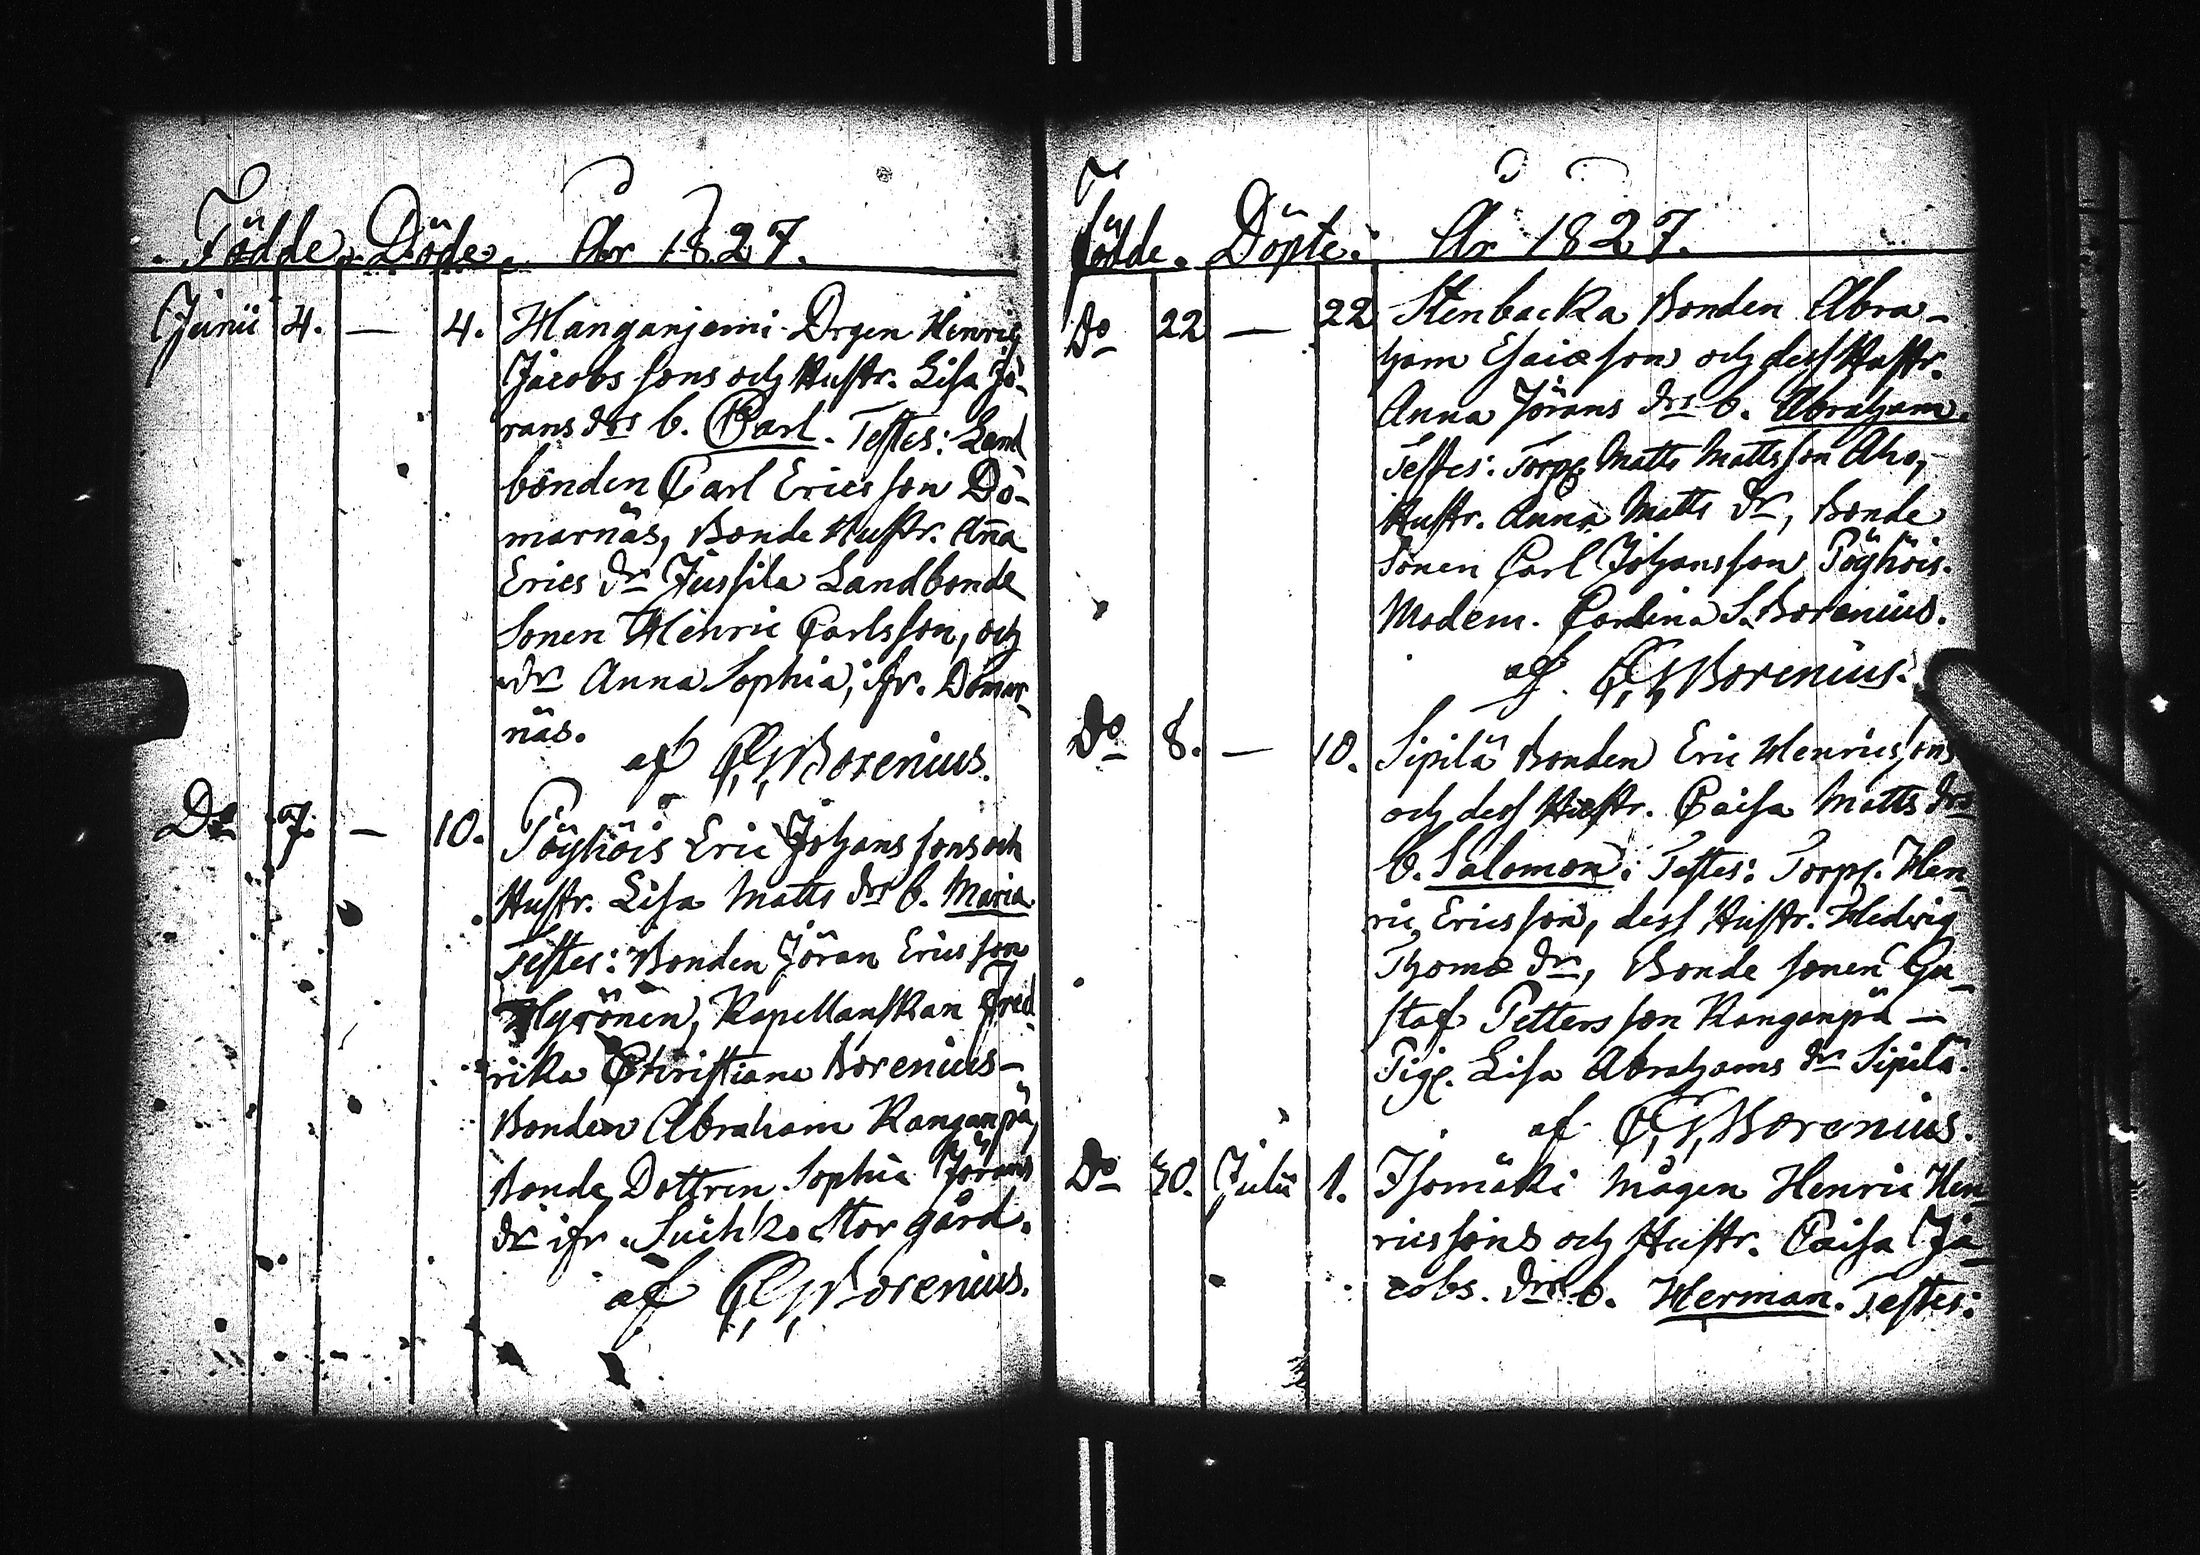 Födde. Döde. År 1827.
Junii 4. — 4. Manganjemi Drgen Henric
Jacobs sons och Hustr. Lisa Jö-
rans drs b. Carl. Testes: Land
bonden Carl Ericsson Dö-
marnäs, Bonde Hustr. Anna
Erics dr Jussila Landbonde
Sonen Henric Carlsson, och
dr Anna Sophia, ifr. Dömar-
näs.
af C. G. Borenius.
Do 7. — 10. Pöyhöis Eric Johans sons och
Hustr. Lisa Matts drs b. Maria.
Testes: Bonden Jöran Ericsson
Hyrönen, Kapellanskan Fred-
rika Christiana Borenius —
Bonden Abraham Kanganpä,
Bonde Dottren Sophia Jörans
dr ifr. Suihko Storgård.
af C. G. Borenius.
Födde. Döpte. År 1827.
Do 22 — 22 Stenbacka Bonden Abra-
ham Esaiæ sons och dess Hustr.
Anna Jörans drs b. Abraham.
Testes: Torp. Matts Mattsson Aho,
Hustr. Anna Matts dr, Bonde
Sonen Carl Johansson Pöyhöis.
Madem. Carolina S. Borenius.
af C. G. Borenius.
Do 8. — 10. Sipilä Bonden Eric Henricsons
och dess Hustr. Caisa Matts drs
b. Salomon. Testes: Torp. Hen-
ric Ericsson, dess Hustr. Hedvig
Thomæ dr, Bonde sonen Gu-
staf Pettersson Kanganpä —
Pig. Lisa Abrahams dr Sipilä.
af C. G. Borenius.
Do 30. Julii 1. Isomäki Mågen Henric Hen-
ricssons och Hustr. Caisa Ja-
cobs. drs b. Herman. Testes: